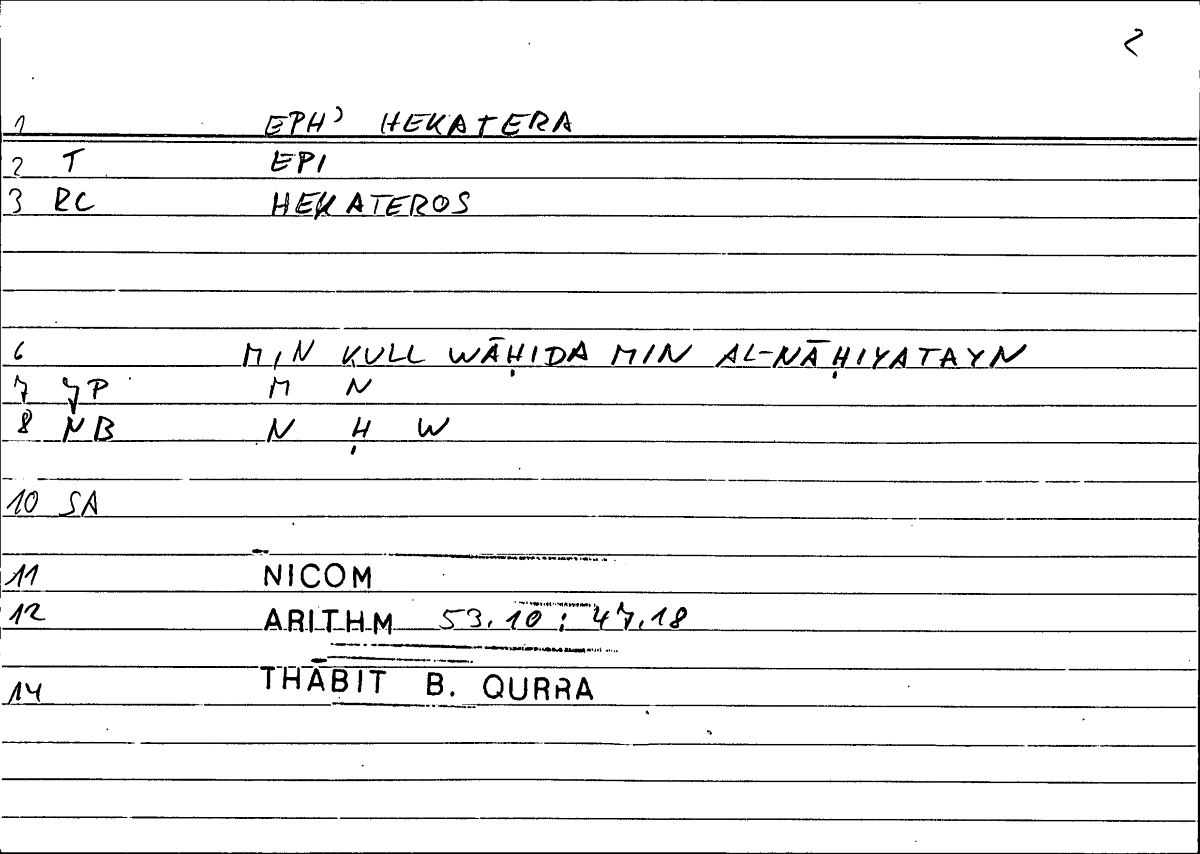 2
1 EPH' HEKATERA
2 T EPI
3 RC HEKATEROS
6 MIN KULL WĀḤIDA MIN AL-NĀḤIYATAYN
7 YP M N
8 NB N Ḥ W
10 SA
11 NICOM
12 ARITHM 53.10 : 47.18
14 THĀBIT B. QURRA